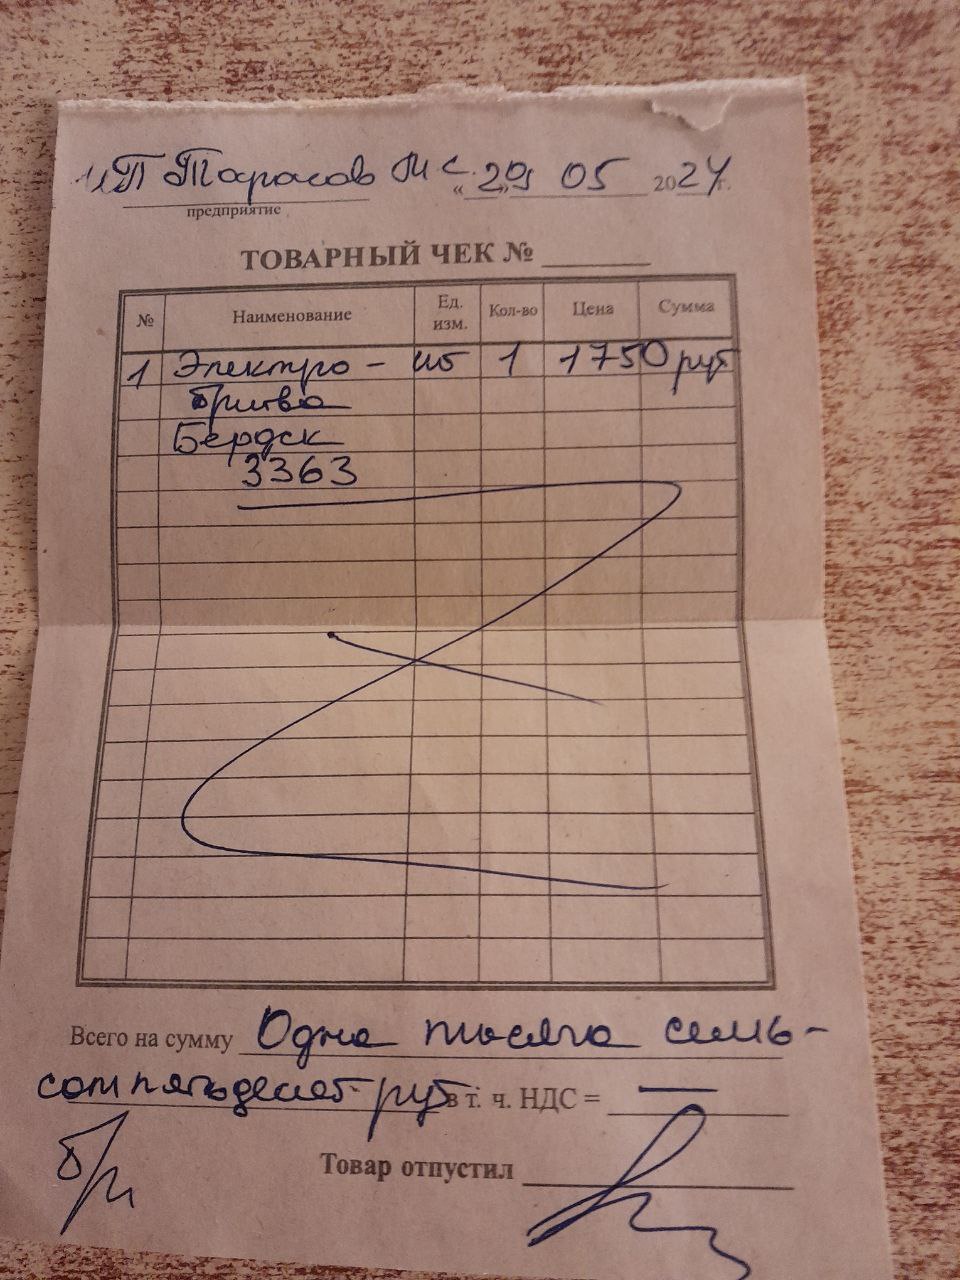 ИП Тарасов М С. «29» 05 2024 г.
предприятие
ТОВАРНЫЙ ЧЕК №
№ Наименование Ед. изм. Кол-во Цена Сумма
1 Электро- шт 1 1750 руб
бритва
Бердск
3363
Всего на сумму Одна тысяча семь-
сот пятьдесят руб в т. ч. НДС = —
Товар отпустил